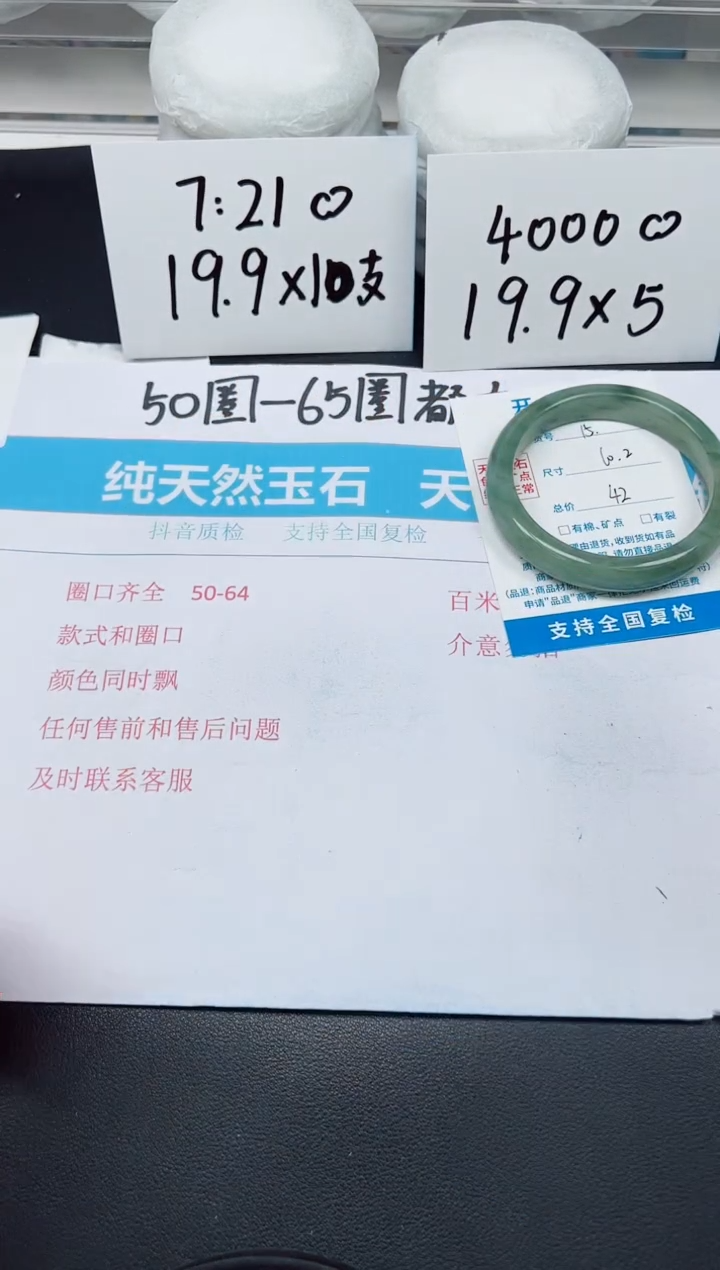 7:21
19.9×10支
4000
19.9×5
50圈—65圈都
纯天然玉石 天
抖音质检 支持全国复检
圈口齐全 50-64
款式和圈口
颜色同时飘
任何售前和售后问题
及时联系客服
百米
介意
15.
尺寸 60.2
总价 42
□有棉、矿点 □有裂
理由退货,收到货如有品
请勿直接品退
(品退:商品材质
申请"品退"商家一律
回运费
支持全国复检